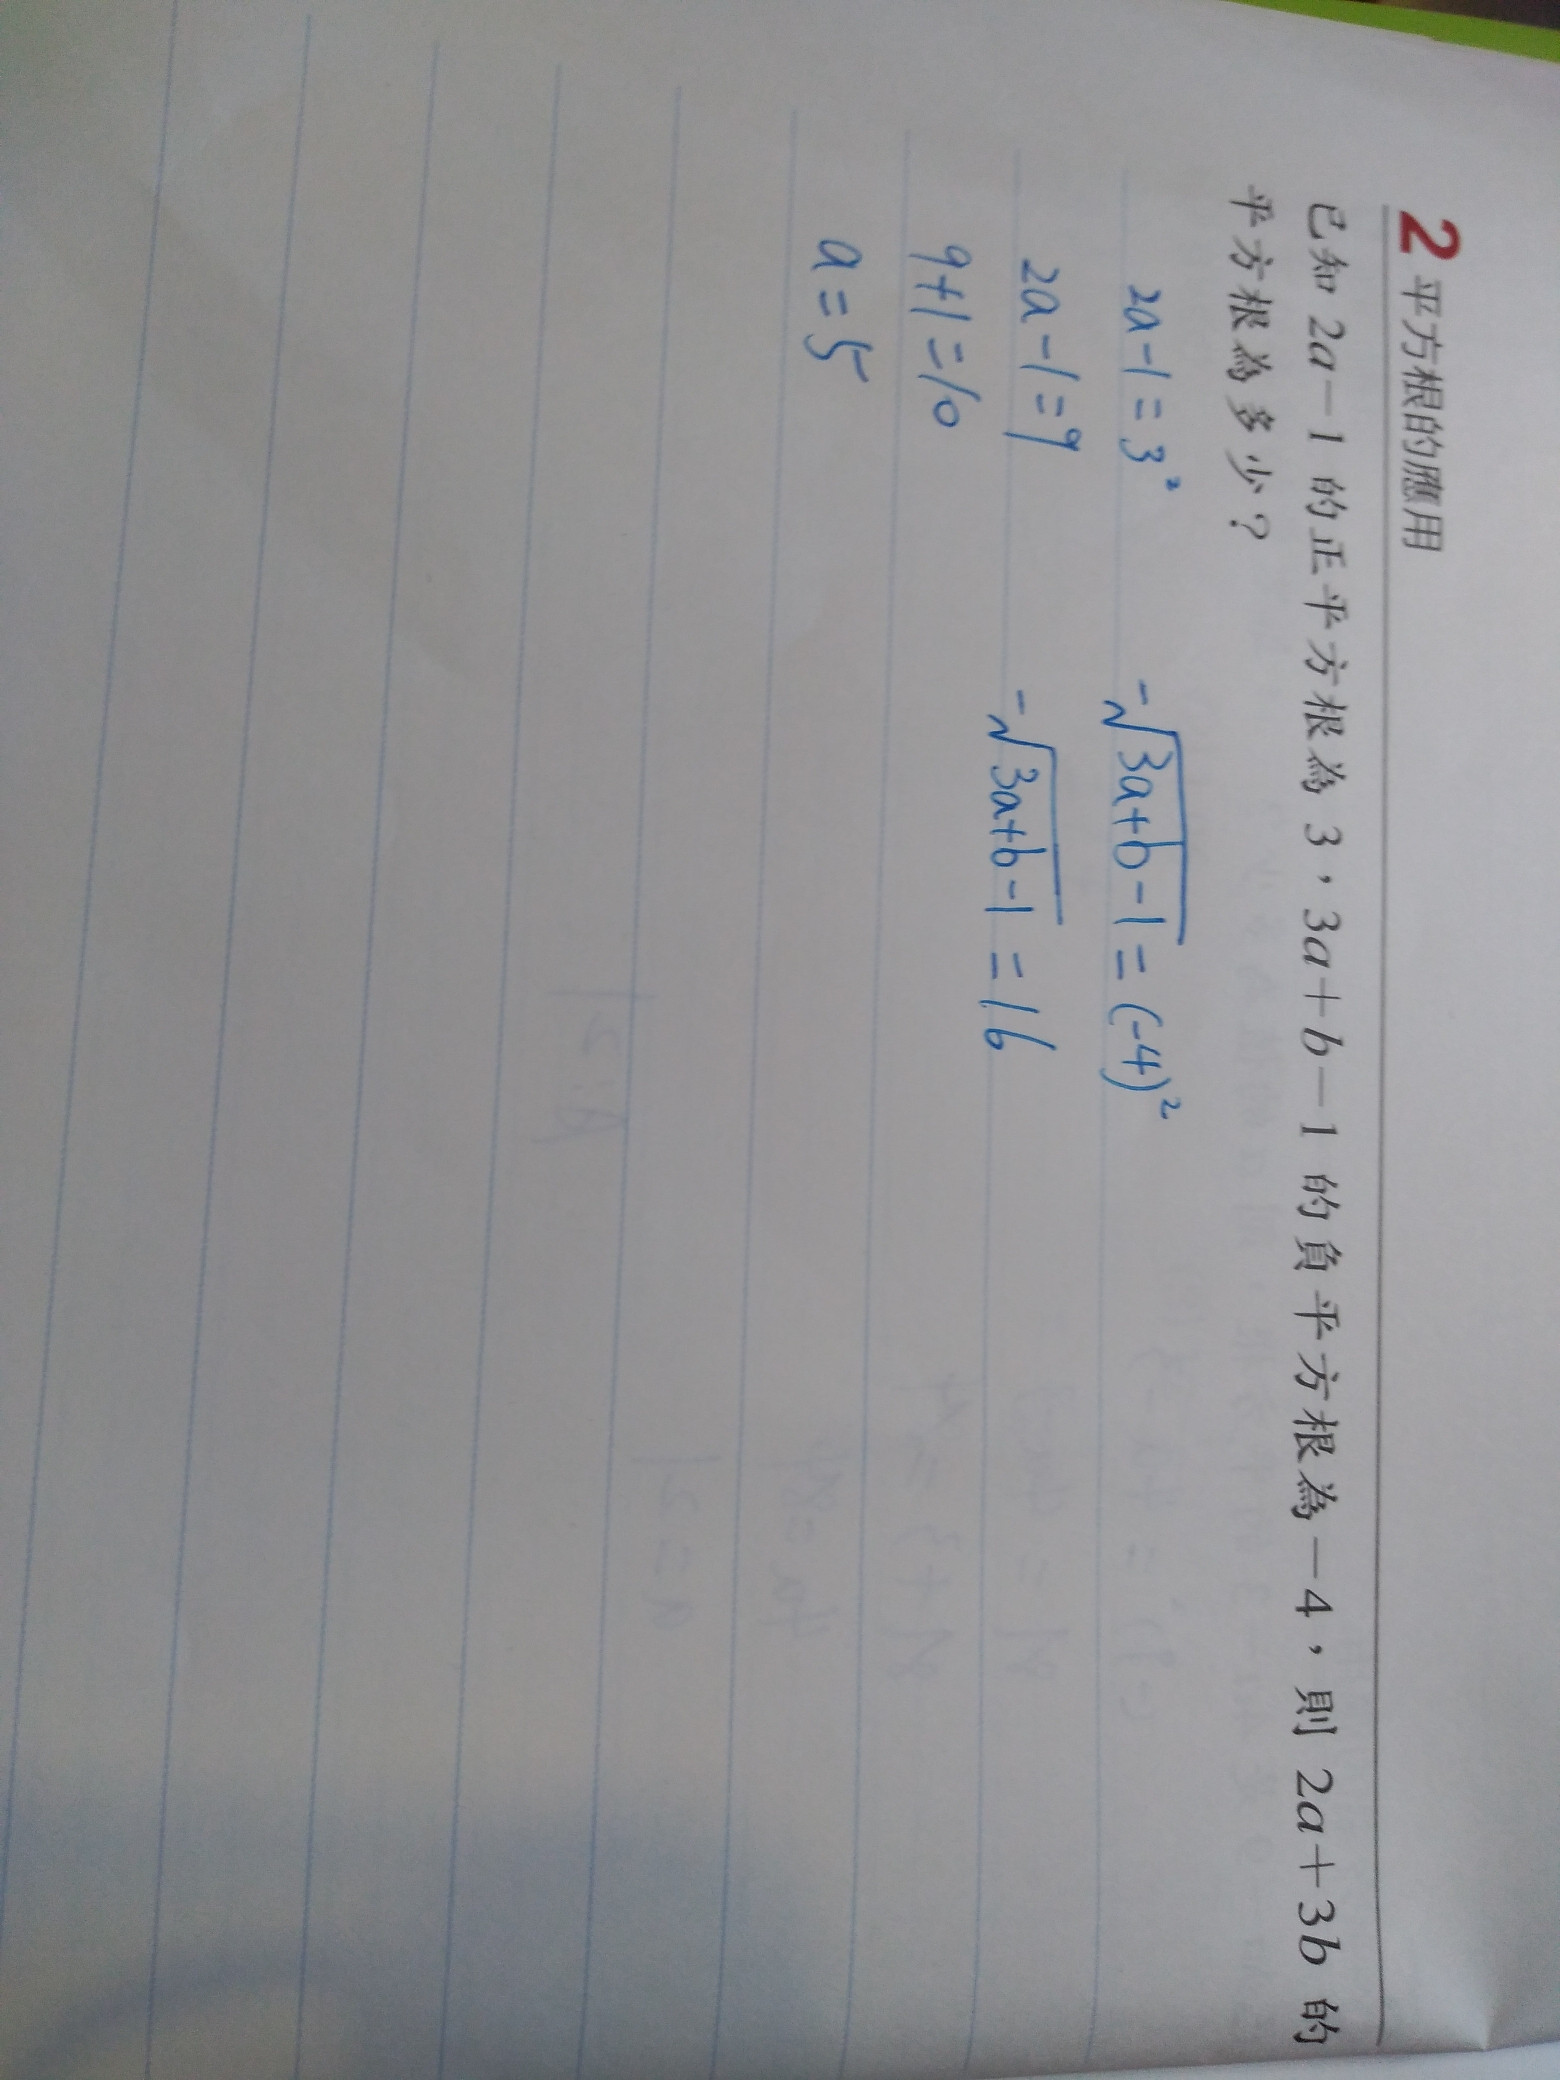 2 平方根的應用
已知 2a－1 的正平方根為 3，3a＋b－1 的負平方根為－4，則 2a＋3b 的
平方根為多少？
2a-1=3²
2a-1=9
9+1=10
a=5
-√3a+b-1=(-4)²
-√3a+b-1=16